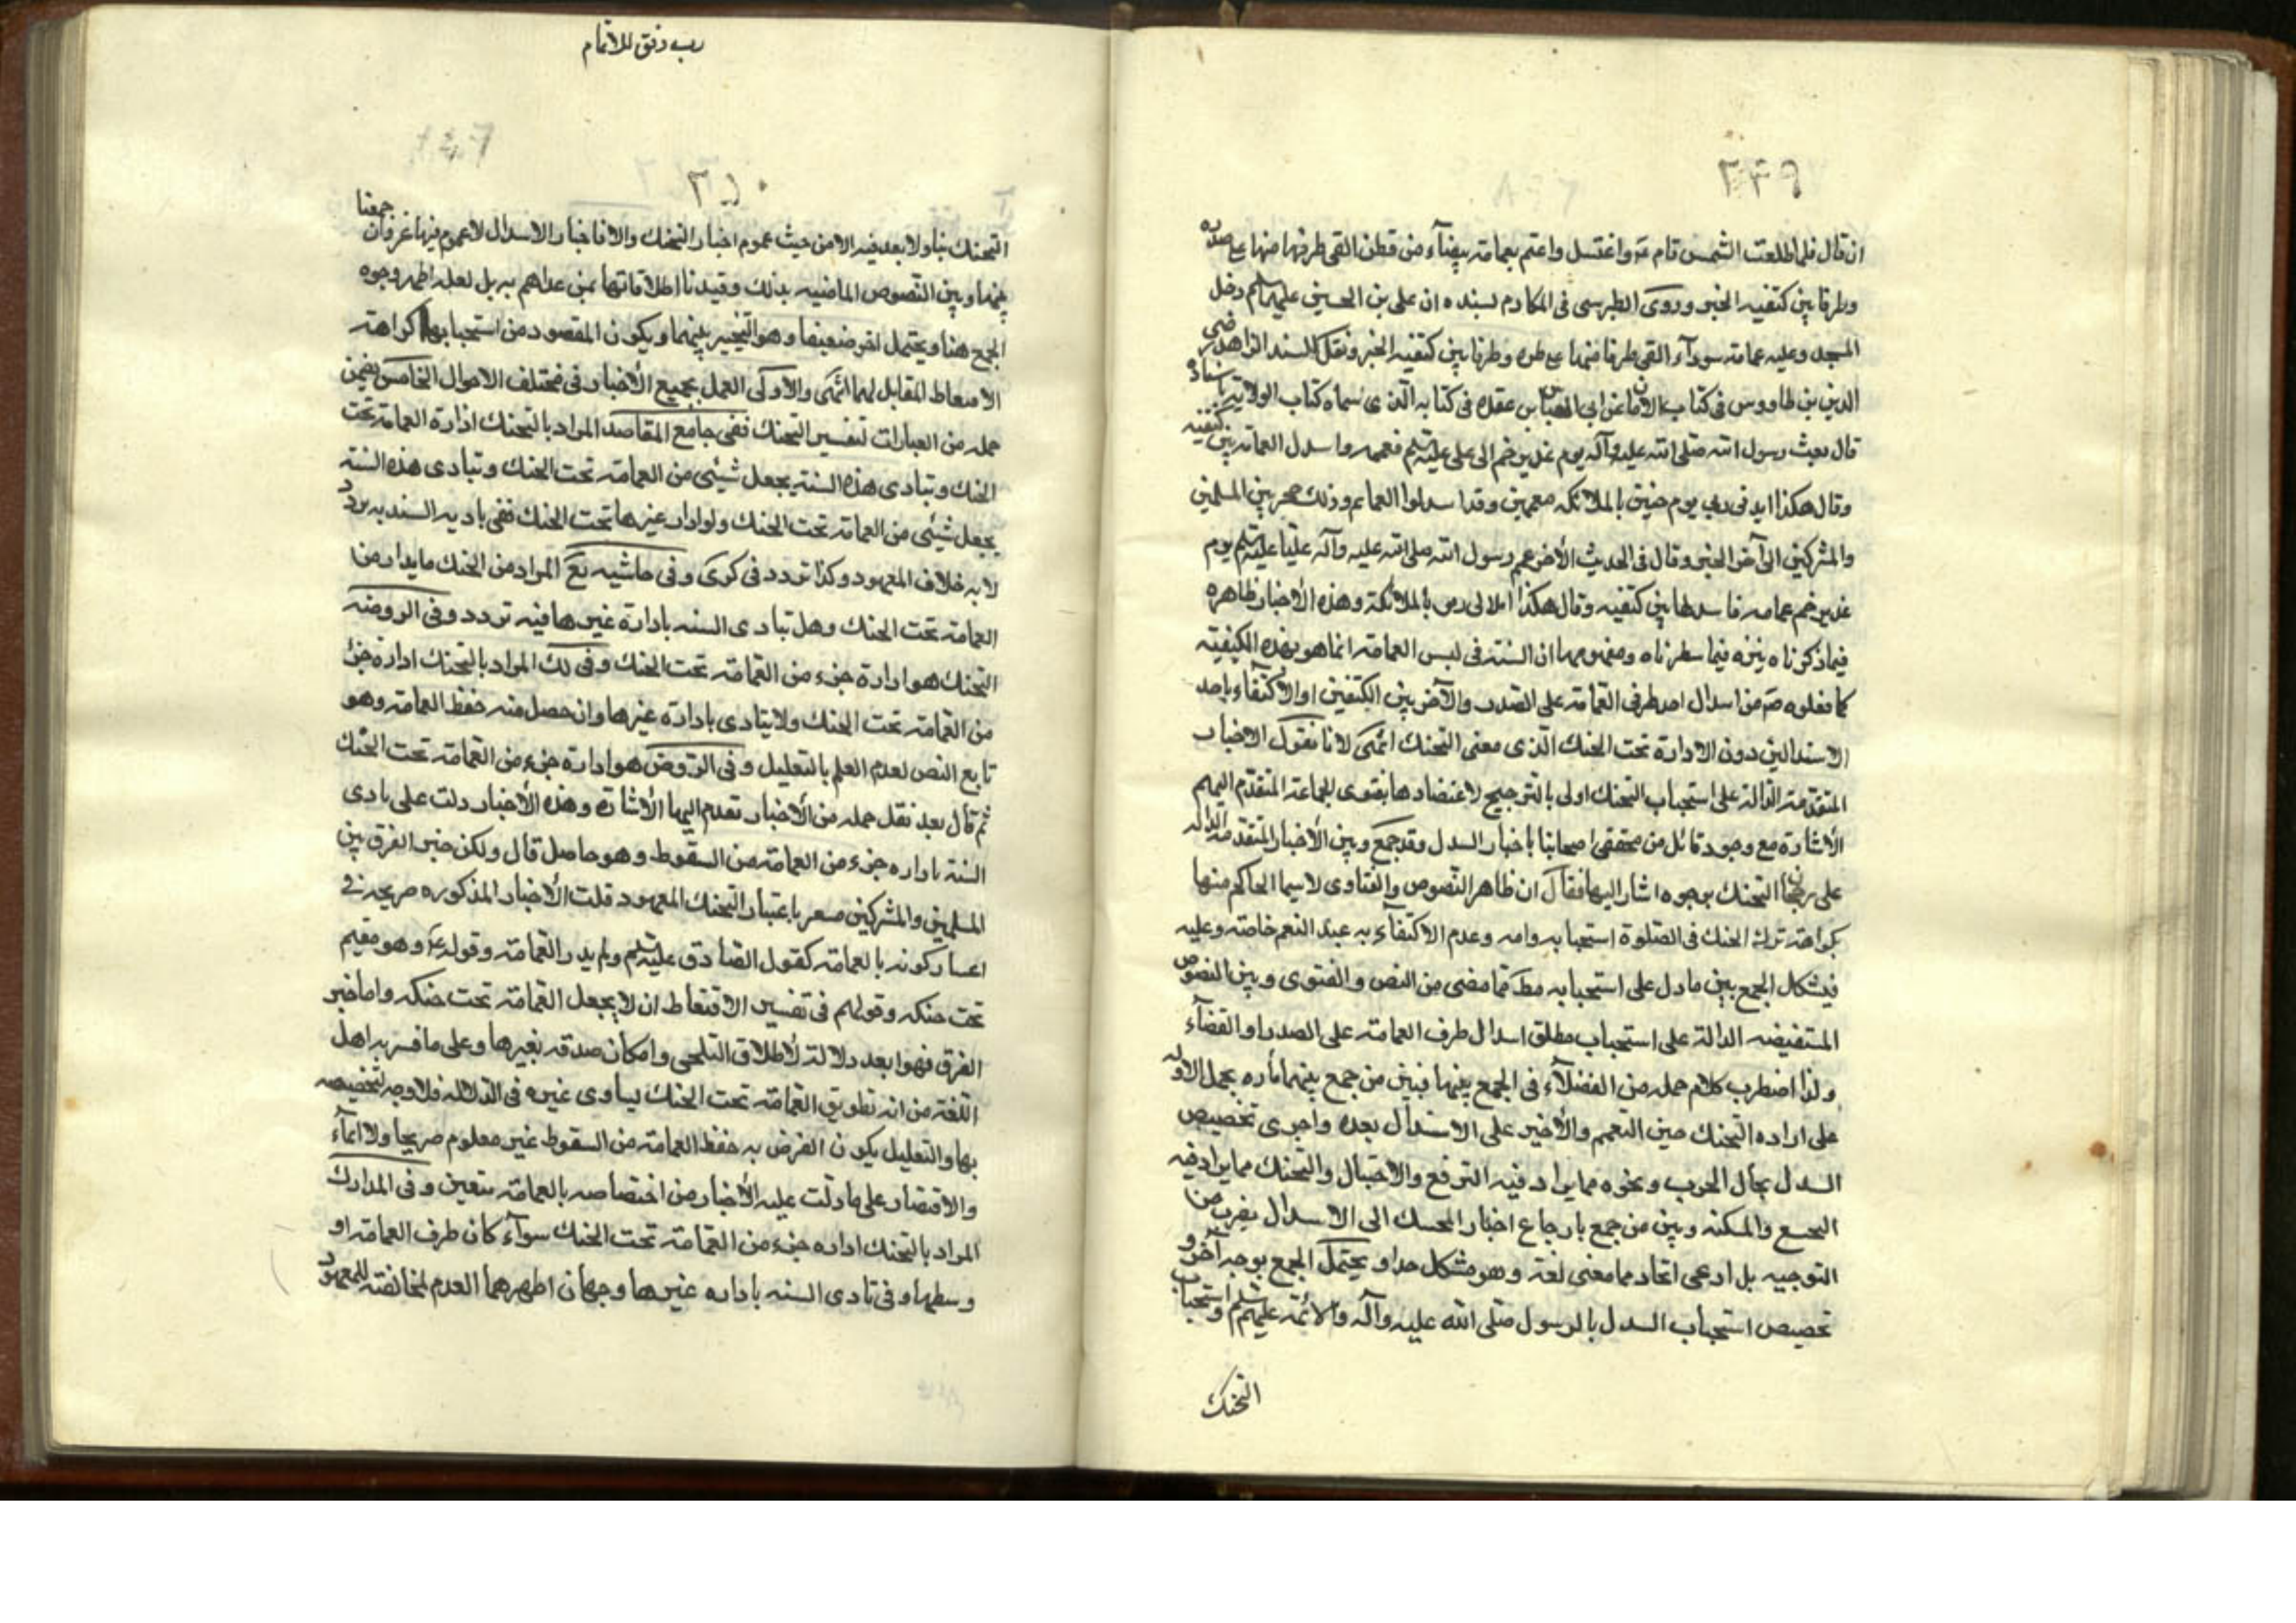 ٣٤٩
ان قال فلما طلعت الشمس قام ع واغتسل واعتم بعمامة بيضاء من قطن القى طرفها منها على صدره
وطرفا بين كتفيه الخبر وروى الطبرسي في المكارم بسنده ان علي بن الحسين عليهما السلم دخل
المسجد وعليه عمامة سوداء القى طرفا منها على صدره وطرفا بين كتفيه الخبر ونقل السند الزاهد رضي
الدين بن طاووس في كتاب الامان عن ابي العباس بن عقده في كتابه الذي سماه كتاب الولاية باسناده
قال بعث رسول الله صلى الله عليه وآله يوم غدير خم الى علي عليه السلم فعممه واسدل العمامة بين كتفيه
وقال هكذا ايدني ربي يوم حنين بالملائكه معممين وقد اسدلوا العمايم وذلك حجر بين المسلمين
والمشركين الى آخر الخبر وقال في الحديث الأخر عمم رسول الله صلى الله عليه وآله عليا عليه السلم يوم
غدير خم عمامه فاسدلها بين كتفيه وقال هكذا ربي بالملائكة وهذه الأخبار ظاهره
فيما ذكرناه فيما سطرناه ومفهومها ان السنة في لبس العمامة انما هو بهذه الكيفية
كما فعلوه ص من اسدال احد طرفي العمامة على الصدر والآخر بين الكتفين او الاكتفاء باحد
الاسدالين دون الادارة تحت الحنك الذي معنى التحنك انتهى لانا نقول الاخبار
المتقدمة الدالة على استحباب التحنك اولى بالترجيح لاعتضادها بفتوى الجماعة المتقدم اليهم
الأشارة مع وجود قائل من محققي اصحابنا باخبار السدل وقد جمع وبين الأخبار المتقدمة الداله
على رجحان التحنك بوجوه اشار اليها فقال ان ظاهر النصوص والفتاوى لاسيما الحاكم منها
بكراهة ترك الحنك في الصلوة استحبابه وامه وعدم الاكتفاء به عند التعم خاصة وعليه
فيشكل الجمع بين ما دل على استحبابه مط كما مضى من النص والفتوى وبين النصوص
المستفيضه الدالة على استحباب مطلق اسدال طرف العمامة على الصدر او القفاء
ولذا اضطرب كلام جمله من الفضلاء في الجمع بينها فبين من جمع بينهما تاره بحمل الاوله
على اراده التحنك حين التعمم والأخير على الاسدال بعده واخرى تخصيص
السدل بحال الحرب ونحوه مما يراد فيه الترفع والاختيال والتحنك مما يراد فيه
التخشع والمسكنه وبين من جمع بارجاع اخبار التحنك الى الاسدال بضرب من
التوجيه بل ادعى اتحادهما معنى لغة وهو مشكل جدا ويحتمل الجمع بوجه آخر و
تخصيص استحباب السدل بالرسول صلى الله عليه وآله والائمة عليهم السلم واستحباب
التحنك
رب وفق للاتمام
٣٥٠
التحنك بنا ولا بعد فيه الا من حيث عموم اخبار التحنك والا فاخبار الاسدال لا عموم فيها غير وان جمعنا
بينها وبين النصوص الماضيه بذلك وقيدنا اطلاقاتها بمن عداهم به بل لعله اظهر وجوه
الجمع هنا ويحتمل اخر ضعيفا وهو التخيير بينهما ويكون المقصود من استحبابهما كراهة
الاقتعاط المقابل لهما انتهى والأولى العمل بجميع الأخبار في مختلف الاحوال الخامس تضمن
جمله من العبارات تفسير التحنك ففي جامع المقاصد المراد بالتحنك ادارة العمامة تحت
الحنك وتتادى هذه السنة بجعل شيئي من العمامة تحت الحنك وتتادى هذه السنة
بجعل شيئي من العمامة تحت الحنك ولو ادار غيرها تحت الحنك ففي تاديه السنه به تردد
لانه خلاف المعهود وكذا تردد في كرى وفي حاشيه يع المراد من الحنك ما يدار من
العمامة تحت الحنك وهل تتادى السنه بادارة غيرها فيه تردد وفي الروضه
التحنك هو ادارة جزء من العمامة تحت الحنك وفي لك المراد بالتحنك ادارة جزء
من العمامة تحت الحنك ولا يتادى بادارة غيرها وان حصل منه حفظ العمامة وهو
تابع النص لعدم العلم بالتعليل وفي الروض هو ادارة جزء من العمامة تحت الحنك
ثم قال بعد نقل جمله من الأخبار تقدم اليها الأشارة وهذه الأخبار دلت على تادى
السنة باداره جزء من العمامة من السقوط وهو حاصل قال ولكن خبر الفرق بين
المسلمين والمشركين مشعر باعتبار التحنك المعهود قلت الأخبار المذكوره صريحه في
اعتبار كونه بالعمامة كقول الصادق عليه السلم ولم يدر العمامة وقوله ع وهو مقيم
تحت حنكه وقولهم في تفسير الاقتعاط ان لا يجعل العمامة تحت حنكه واما خبر
الفرق فهو ابعد دلالة لأطلاق التلحي وامكان صدقه بغيرها وعلى ما فسر به اهل
اللغة من انه تطويق العمامة تحت الحنك يساوى غيره في الدلاله فلا وجه لتخصيصه
بها والتعليل بكون الغرض به حفظ العمامة من السقوط غير معلوم صريحا ولا ايماء
والاقتصار على ما دلت عليه الأخبار من اختصاصه بالعمامة متعين وفي المدارك
المراد بالتحنك اداره جزء من العمامة تحت الحنك سواء كان طرف العمامة او
وسطها وفي تادى السنه باداره غيرها وجهان اظهرهما العدم لمخالفته للمعهود